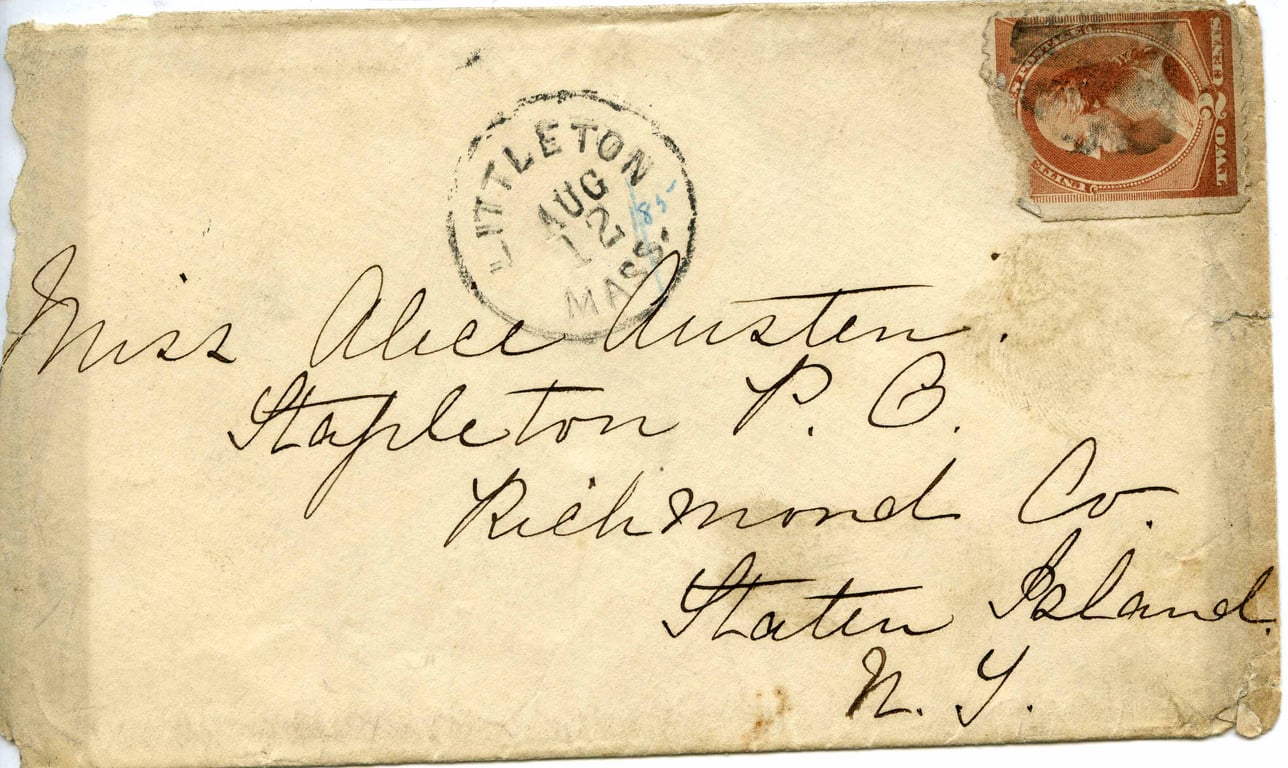 LITTLETON
AUG
12
MASS.
85
TWO 2 CENTS
UNITED
Miss Alice Austen.
Stapleton P. O.
Richmond Co.
Staten Island.
N. Y.